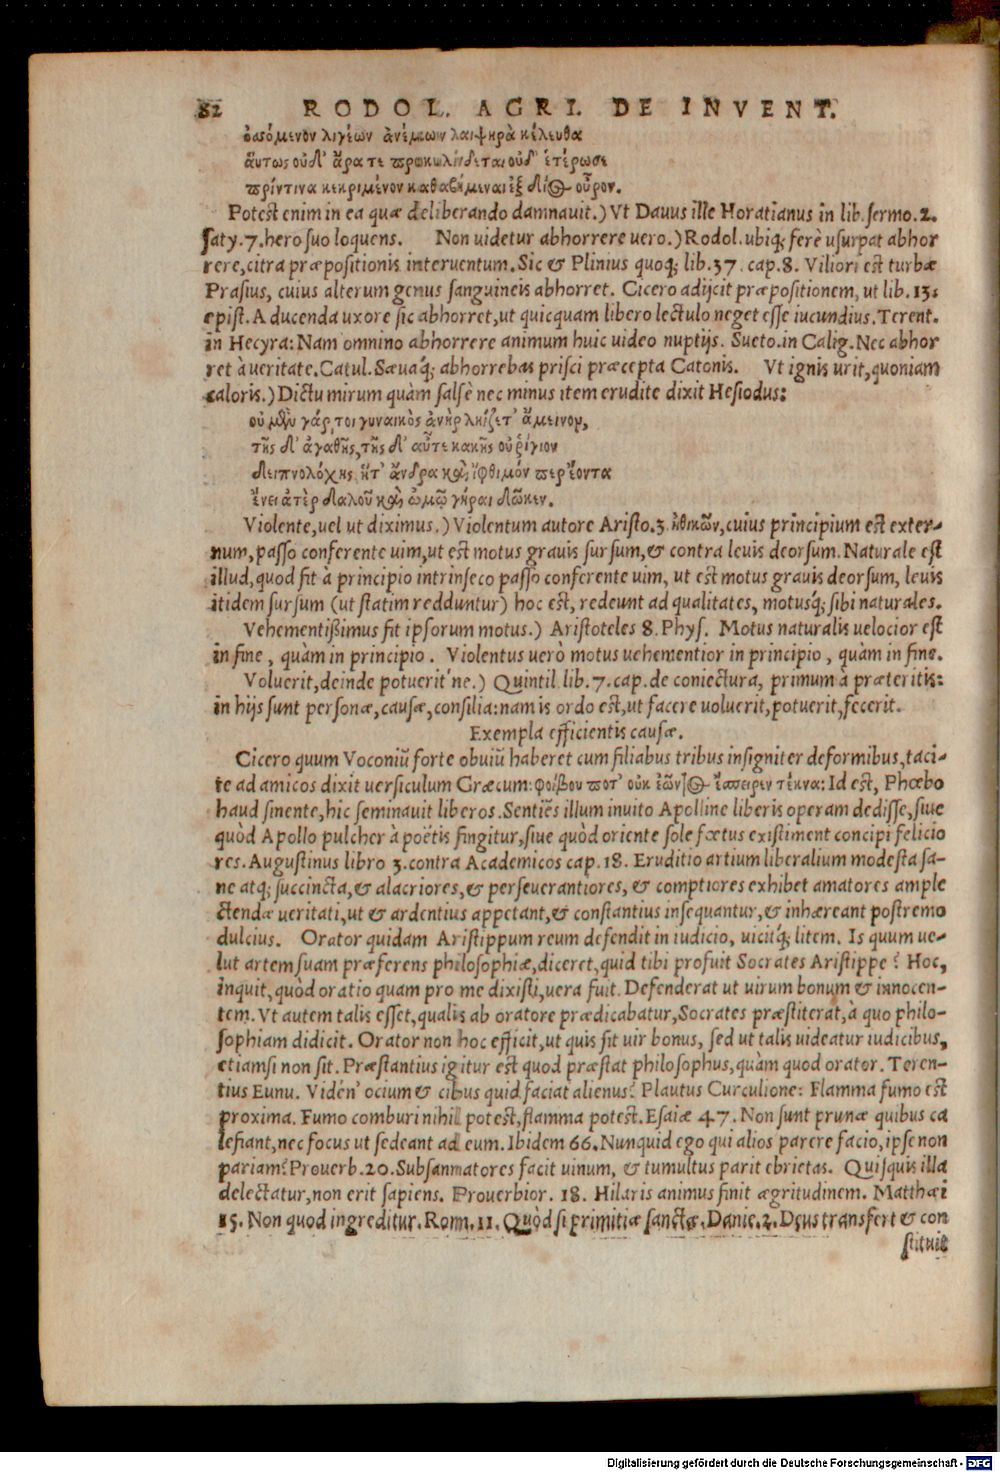 82 RODOL. AGRI. DE INVENT.
ὀσσόμενον λιγέων ἀνέμων λαιψηρὰ κέλευθα
ἄυτως οὐδ' ἄρα τε προκυλίνδεται οὐδ' ἑτέρωσε
πρίντινα κεκριμένον καταβήμεναι ἐξ διὸς οὖρον.
Potest enim in ea quæ deliberando damnauit.) Vt Dauus ille Horatianus in lib. sermo. 2.
saty. 7. hero suo loquens. Non uidetur abhorrere uero.) Rodol. ubiq; ferè usurpat abhor
rere, citra præpositionis interuentum. Sic & Plinius quoq; lib. 37. cap. 8. Viliori est turbæ
Prasius, cuius alterum genus sanguineis abhorret. Cicero adijcit præpositionem, ut lib. 13.
epist. A ducenda uxore sic abhorret, ut quicquam libero lectulo neget esse iucundius. Terent.
in Hecyra: Nam omnino abhorrere animum huic uideo nuptijs. Sueto. in Calig. Nec abhor
ret à ueritate. Catul. Sæuaq́; abhorrebas prisci præcepta Catonis. Vt ignis urit, quoniam
caloris.) Dictu mirum quàm salsè nec minus item erudite dixit Hesiodus:
οὐ μὲν γάρ τοι γυναικὸς ἀνὴρ ληίζετ' ἄμεινον,
τῆς δ' ἀγαθῆς, τῆς δ' αὖτε κακῆς οὐ ῥίγιον
δειπνολόχης ἥτ' ἄνδρα καὶ ἴφθιμόν περ ἔοντα
ἕνει ἀτὲρ δαλοῦ καὶ ὠμῷ γήραι δῶκεν.
Violente, uel ut diximus.) Violentum autore Aristo. 3. ἠθικῶν, cuius principium est exter-
num, passo conferente uim, ut est motus grauis sursum, & contra leuis deorsum. Naturale est
illud, quod fit à principio intrinseco passo conferente uim, ut est motus grauis deorsum, leuis
itidem sursum (ut statim redduntur) hoc est, redeunt ad qualitates, motusq́; sibi naturales.
Vehementißimus fit ipsorum motus.) Aristoteles 8. Phys. Motus naturalis uelocior est
in fine, quàm in principio. Violentus uerò motus uehementior in principio, quàm in fine.
Voluerit, deinde potuerit'ne.) Quintil. lib. 7. cap. de coniectura, primum à præteritis:
in hijs sunt personæ, causæ, consilia: nam is ordo est, ut facere uoluerit, potuerit, fecerit.
Exempla efficientis causæ.
Cicero quum Voconiũ forte obuiũ haberet cum filiabus tribus insigniter deformibus, taci-
te ad amicos dixit uersiculum Græcum: φοίβου ποτ' οὐκ ἐῶντος ἔσπειρεν τέκνα: Id est, Phœbo
haud sinente, hic seminauit liberos. Sentiẽs illum inuito Apolline liberis operam dedisse, siue
quòd Apollo pulcher à poëtis fingitur, siue quòd oriente sole fœtus existiment concipi felicio
res. Augustinus libro 3. contra Academicos cap. 18. Eruditio artium liberalium modesta sa-
ne atq; succincta, & alacriores, & perseuerantiores, & comptiores exhibet amatores ample
ctendæ ueritati, ut & ardentius appetant, & constantius insequantur, & inhæreant postremo
dulcius. Orator quidam Aristippum reum defendit in iudicio, uicitq́; litem. Is quum ue-
lut artem suam præferens philosophiæ, diceret, quid tibi profuit Socrates Aristippe? Hoc,
inquit, quòd oratio quam pro me dixisti, uera fuit. Defenderat ut uirum bonum & innocen-
tem. Vt autem talis esset, qualis ab oratore prædicabatur, Socrates præstiterat, à quo philo-
sophiam didicit. Orator non hoc efficit, ut quis sit uir bonus, sed ut talis uideatur iudicibus,
etiamsi non sit. Præstantius igitur est quod præstat philosophus, quàm quod orator. Teren-
tius Eunu. Viden' ocium & cibus quid faciat alienus? Plautus Curculione: Flamma fumo est
proxima. Fumo comburi nihil potest, flamma potest. Esaiæ 47. Non sunt prunæ quibus ca
lefiant, nec focus ut sedeant ad eum. Ibidem 66. Nunquid ego qui alios parere facio, ipse non
pariam? Prouerb. 20. Subsannatores facit uinum, & tumultus parit ebrietas. Quisquis illa
delectatur, non erit sapiens. Prouerbior. 18. Hilaris animus finit ægritudinem. Matthæi
15. Non quod ingreditur. Rom. 11. Quòd si primitiæ sanctæ. Danie. 2. Deus transfert & con
stituit
Digitalisierung gefördert durch die Deutsche Forschungsgemeinschaft - DFG